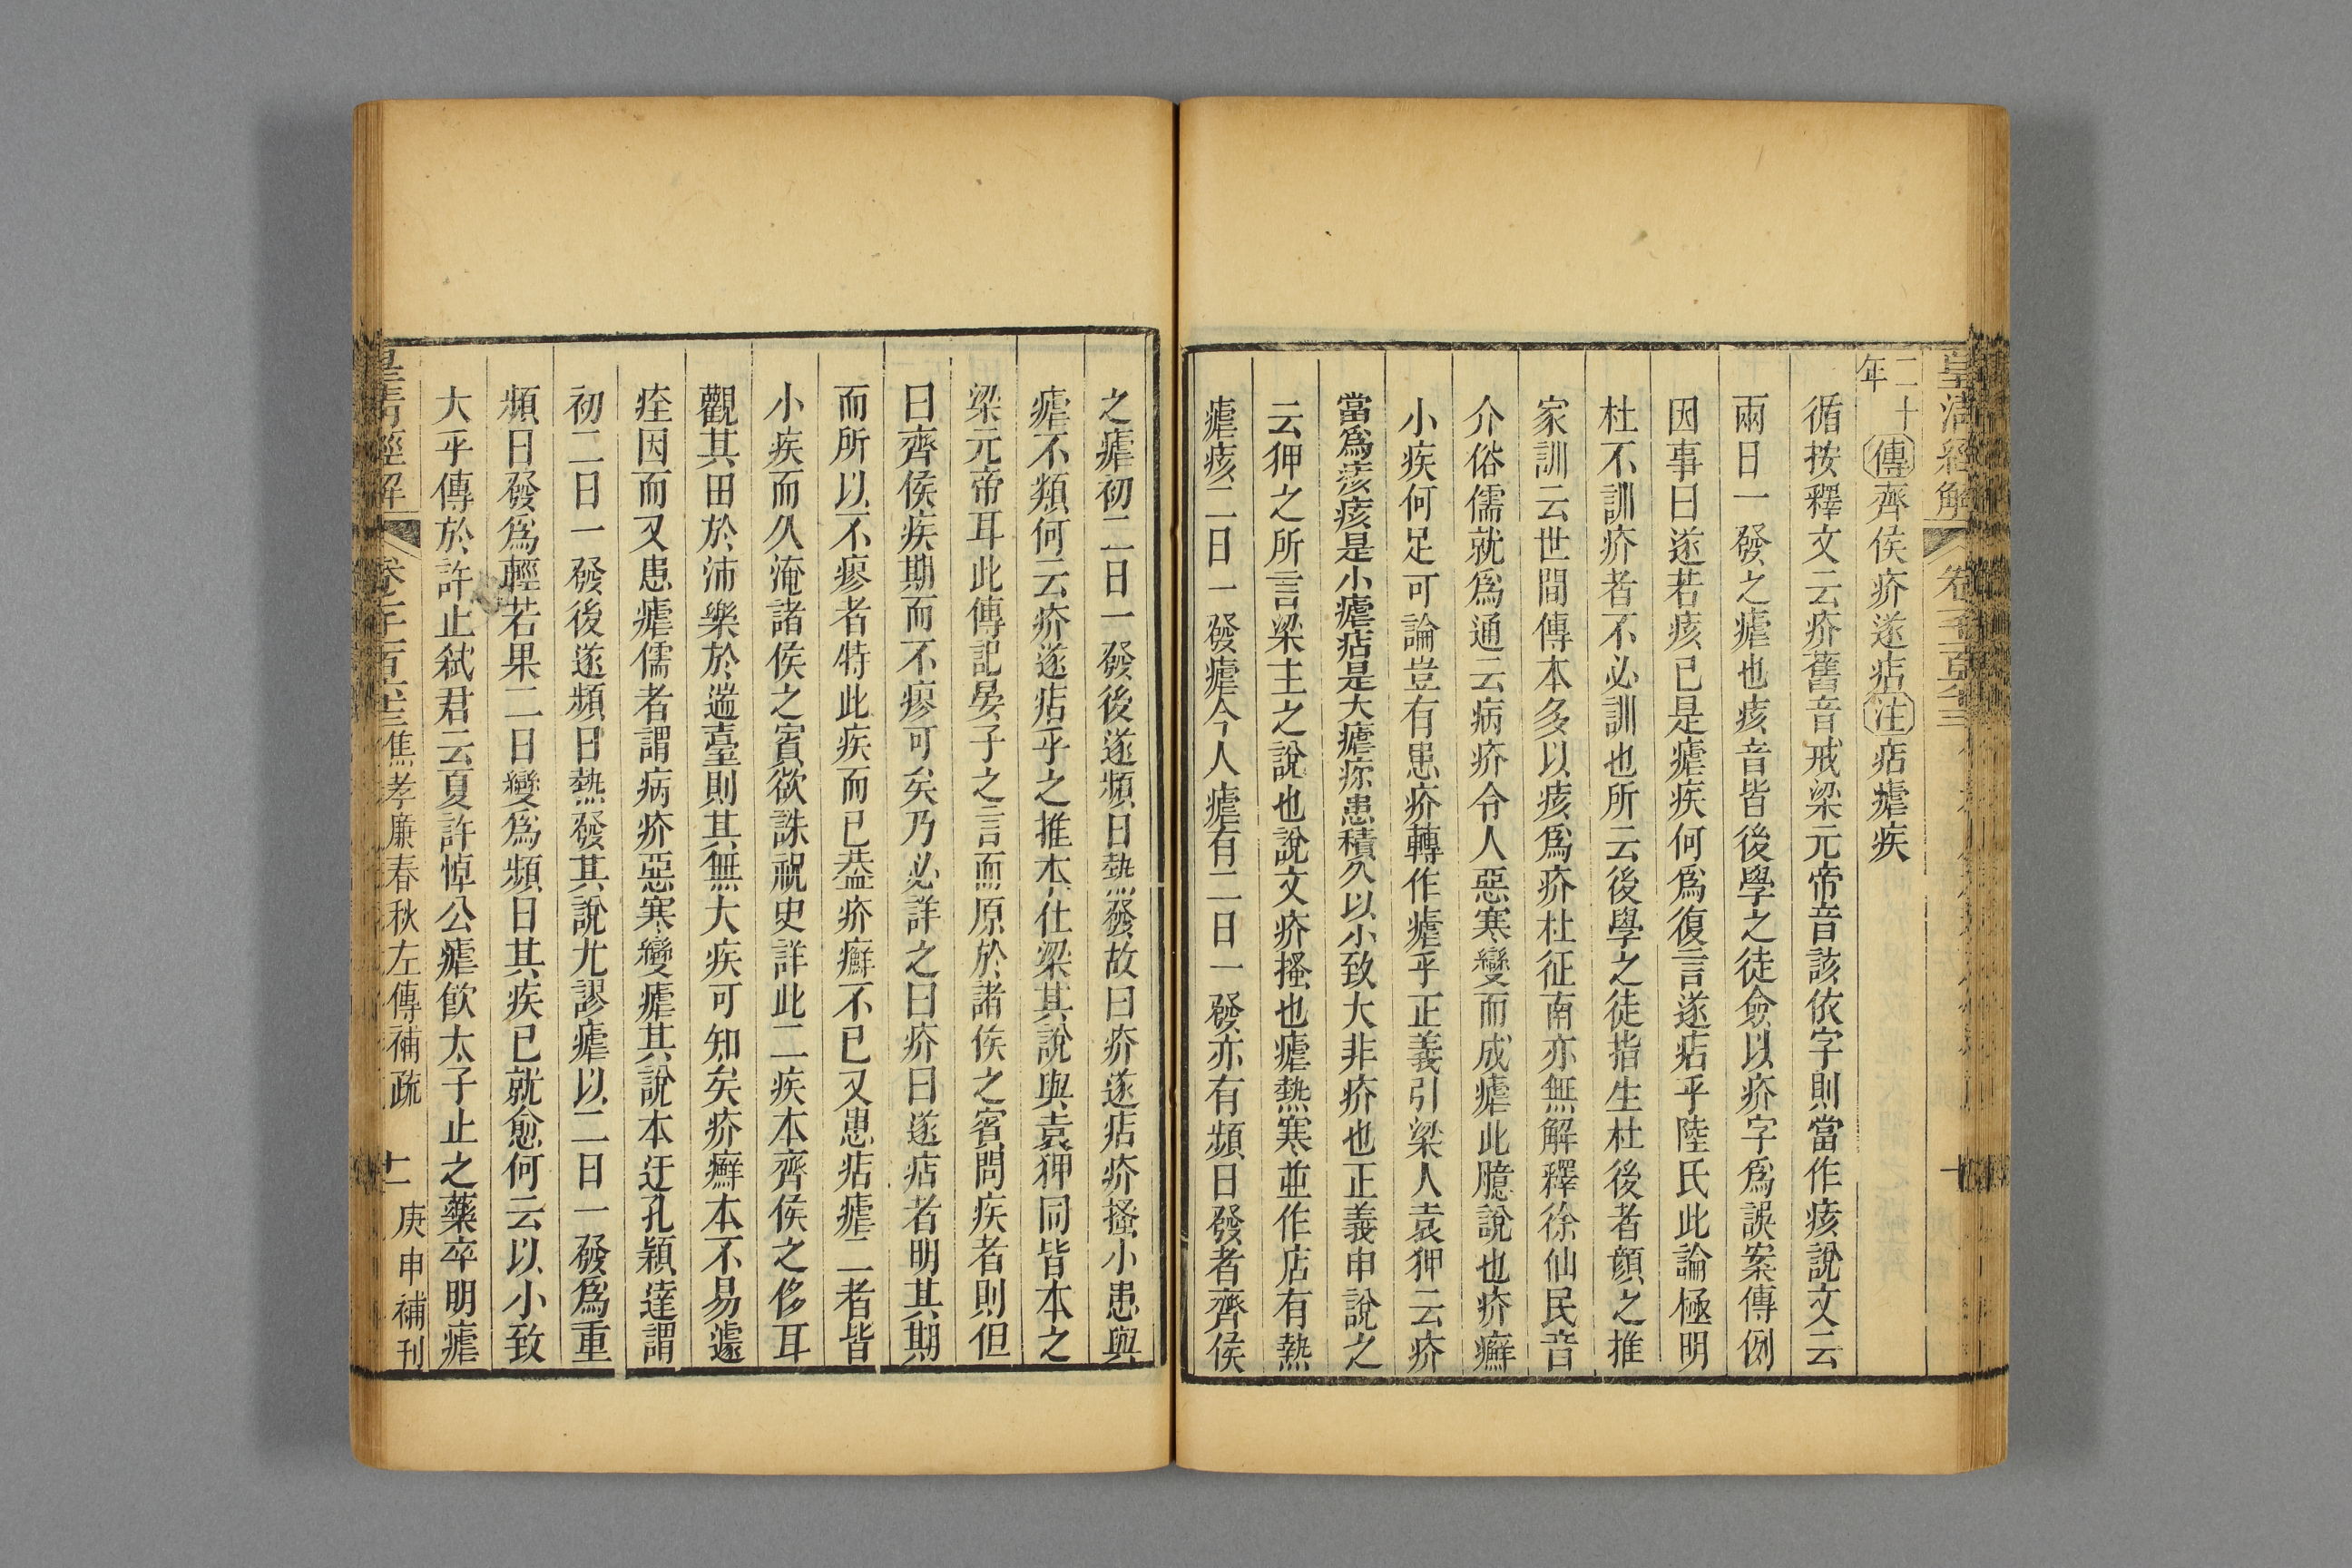 皇清經解
二十年 傳 齊侯疥遂痁 注 痁瘧疾
循按釋文云疥舊音戒梁元帝音該依字則當作痎說文云
兩日一發之瘧也痎音皆後學之徒僉以疥字為誤案傳例
因事曰遂若痎已是瘧疾何為復言遂痁乎陸氏此論極明
杜不訓疥者不必訓也所云後學之徒指生杜後者顔之推
家訓云世間傳本多以痎為疥杜征南亦無解釋徐仙民音
介俗儒就為通云病疥令人惡寒變而成瘧此臆說也疥癬
小疾何足可論豈有患疥轉作瘧乎正義引梁人袁狎云疥
當為痎痎是小瘧痁是大瘧疹患積久以小致大非疥也正義申說之
云狎之所言梁主之說也說文疥搔也瘧熱寒並作店有熱
瘧痎二日一發瘧今人瘧有二日一發亦有頻日發者齊侯
之瘧初二日一發後遂頻日熱發故曰疥遂痁疥搔小患與
瘧不類何云疥遂痁乎之推本仕梁其說與袁狎同皆本之
梁元帝耳此傳記晏子之言而原於諸侯之賓問疾者則但
曰齊侯疾期而不瘳可矣乃必詳之曰疥曰遂痁者明其期
而所以不瘳者特此疾而已葢疥癬不已又患痁瘧二者皆
小疾而久淹諸侯之賓欲誅祝史詳此二疾本齊侯之侈耳
觀其田於沛樂於遄臺則其無大疾可知矣疥癬本不易遽
痊因而又患瘧儒者謂病疥惡寒變瘧其說本迂孔穎達謂
初二日一發後遂頻日熱發其說尤謬瘧以二日一發為重
頻日發為輕若果二日變為頻日其疾已就愈何云以小致
大乎傳於許止弑君云夏許悼公瘧飮太子止之藥卒明瘧
皇清經解 焦孝廉春秋左傳補疏 十一 庚申補刊